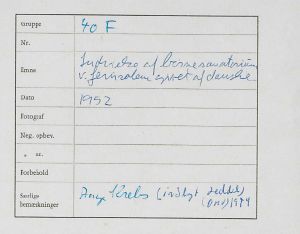 Gruppe 40 F
Nr.
Emne Indvielse af børnesanatorium
v. Jerusalem syvet af danske
Dato 1952
Fotograf
Neg. opbev.
„ nr.
Forbehold
Særlige bemærkninger Krebs (indlagt seddel)